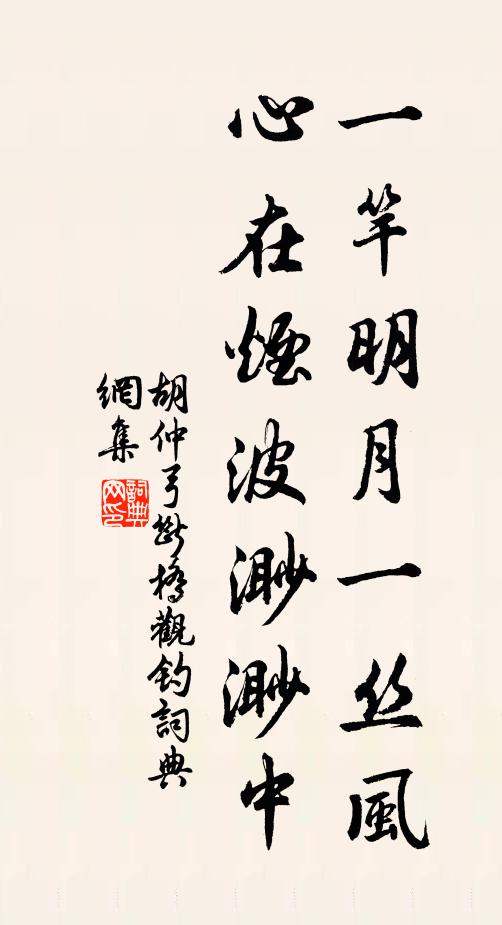 一竿明月一丝風
心在煙波渺渺中
胡仲弓断橋觀釣詞典
網集
詞典
网印